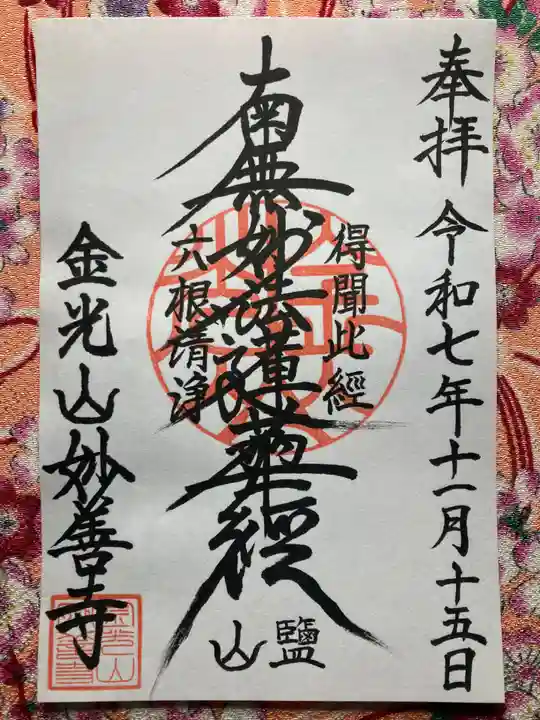 奉拝 令和七年十一月十五日
得聞此經
南無妙法蓮華経
六根清浄
鹽山
金光山妙善寺